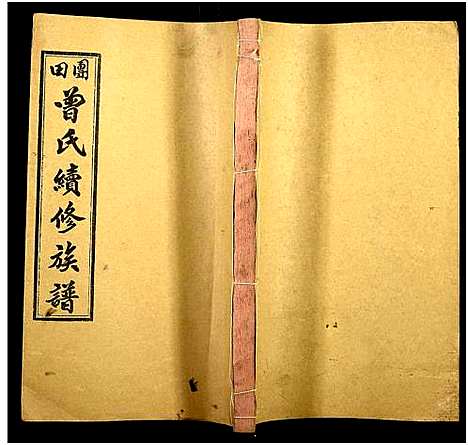 團田
曾氏續修族譜